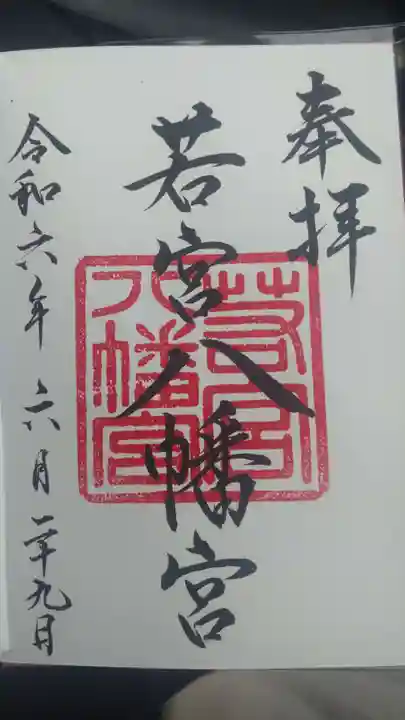 奉拝
若宮八幡宮
若宮
八幡宮
令和六年 六月二十九日